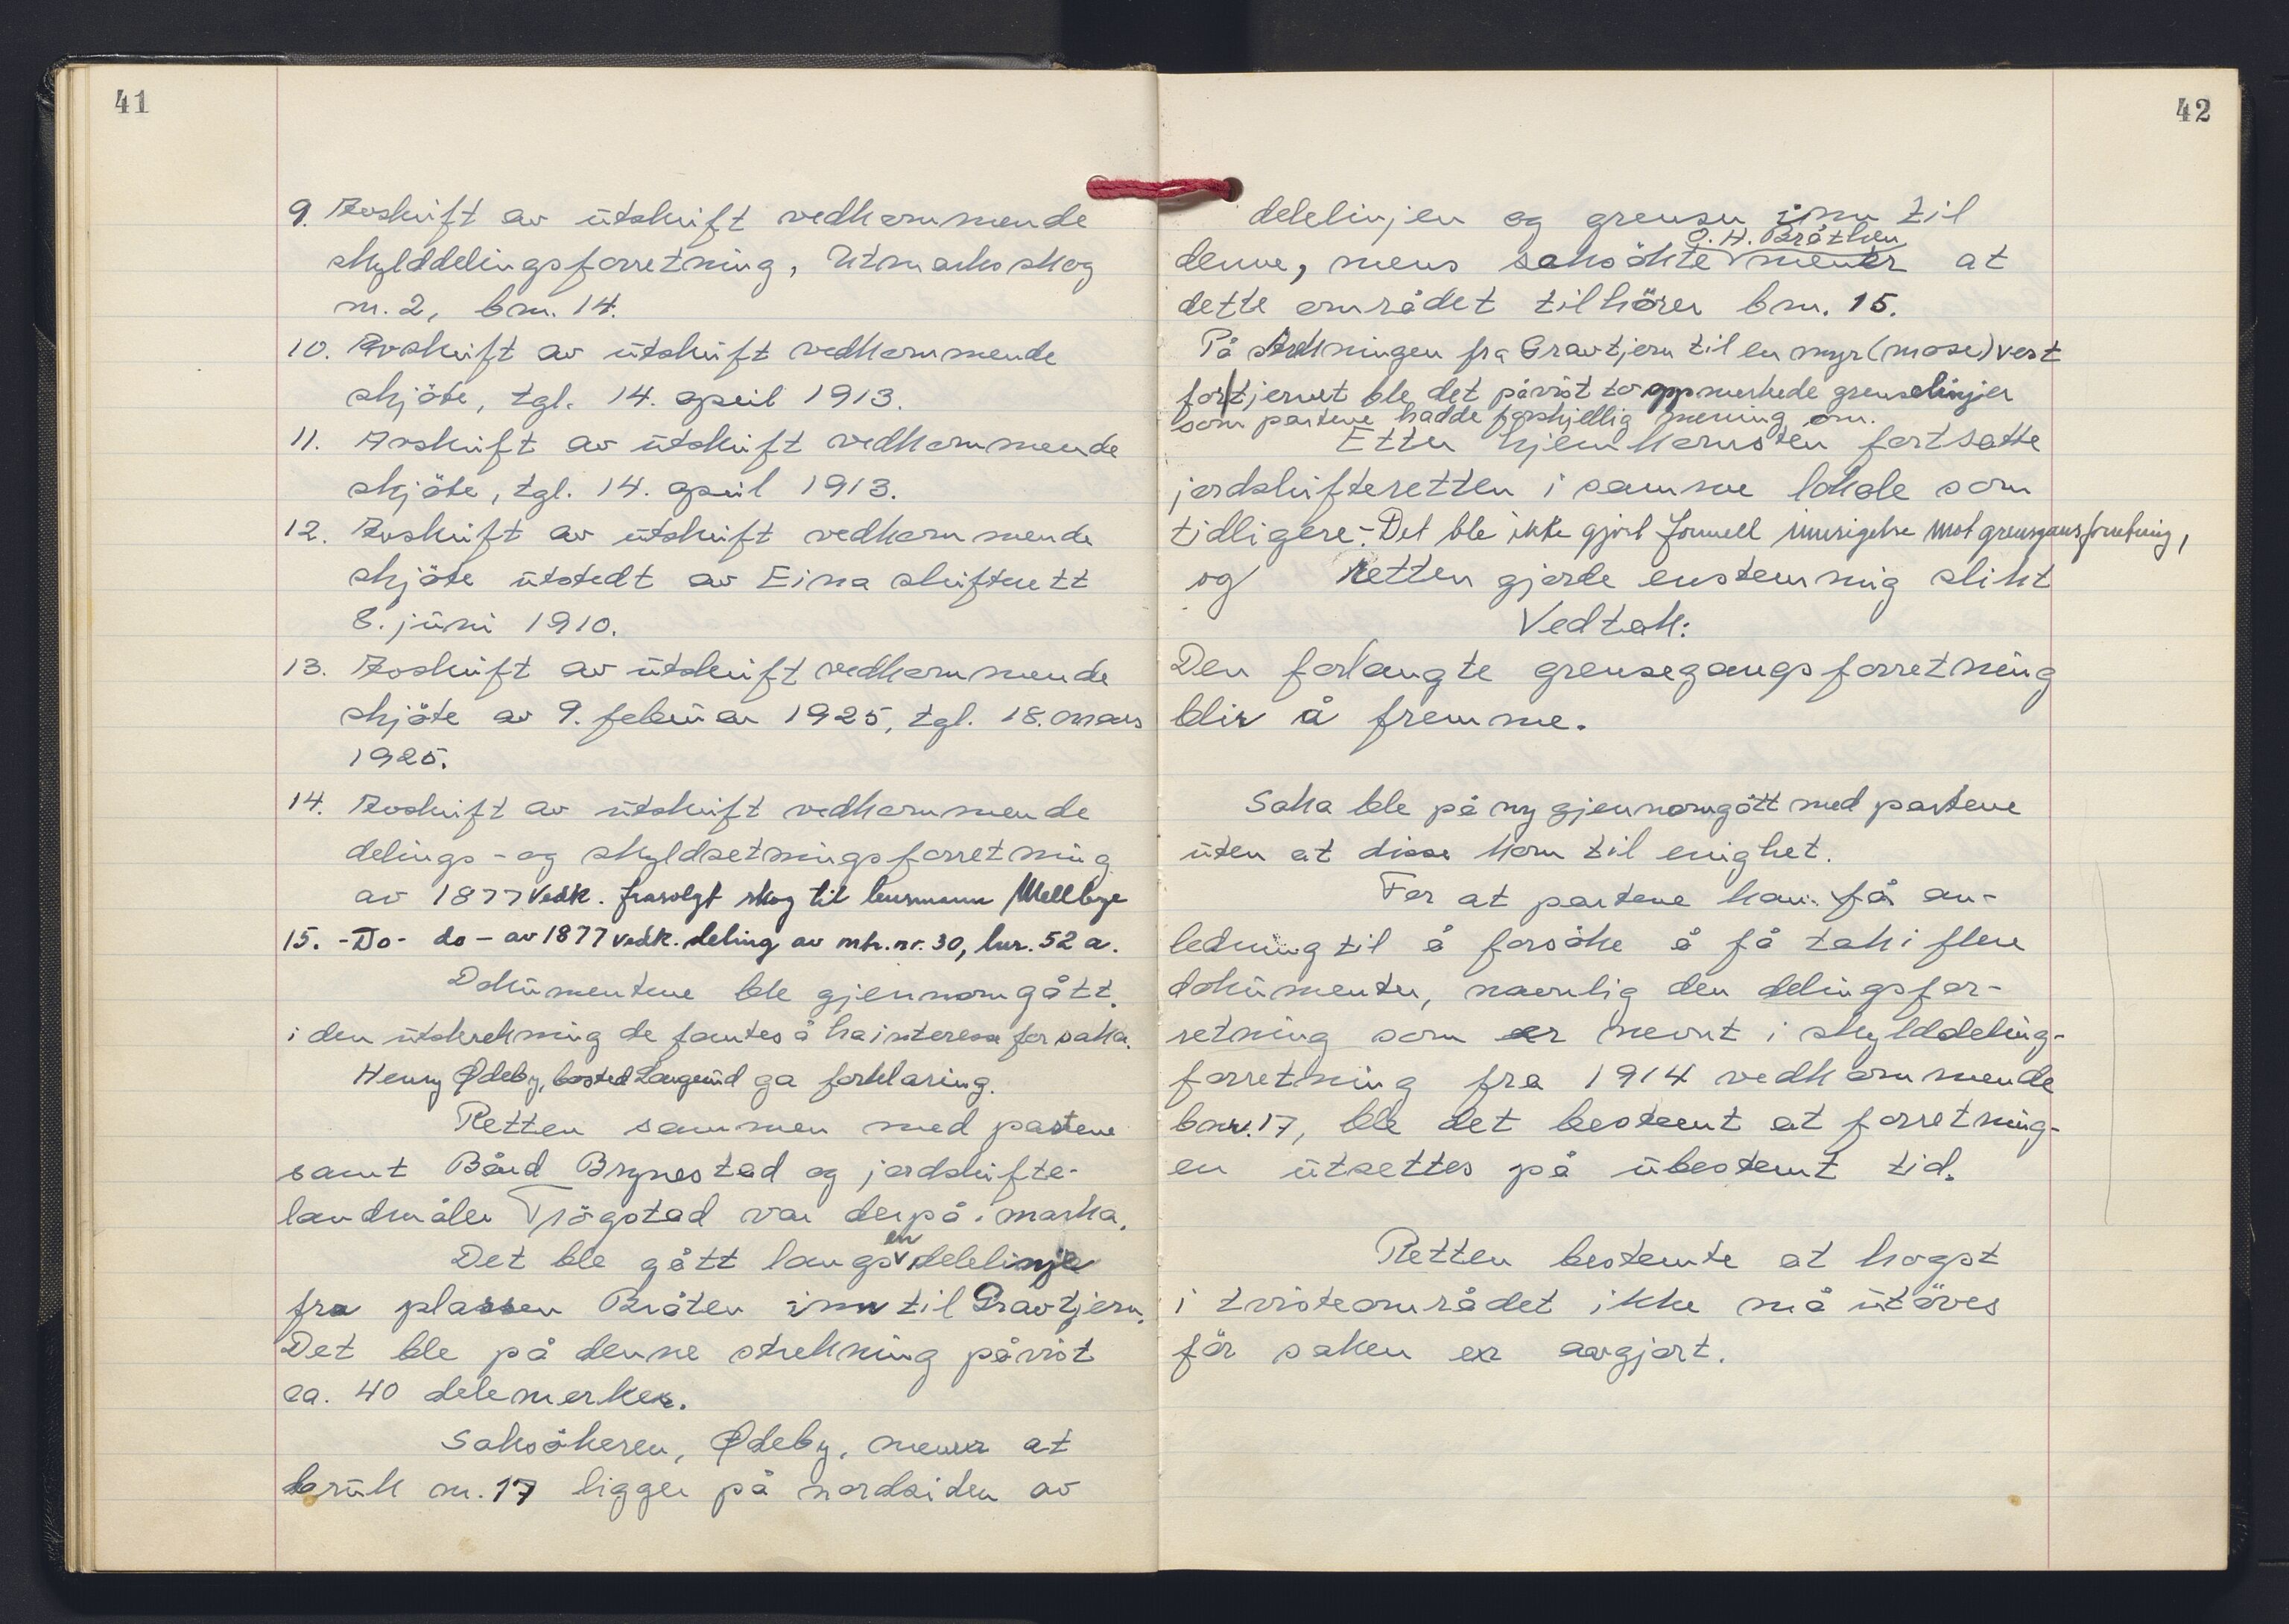 41
9. Avskrift av utskrift vedkommende
skylddelingsforretning, Utmarksskog
nr. 2, bnr. 14.
10. Avskrift av utskrift vedkommende
skjöte, tgl. 14. april 1913.
11. Avskrift av utskrift vedkommende
skjöte, tgl. 14. april 1913.
12. Avskrift av utskrift vedkommende
skjöte utstedt av Eina skifterett
8. juni 1910.
13. Avskrift av utskrift vedkommende
skjöte av 9. februar 1925, tgl. 18. mars
1925.
14. Avskrift av utskrift vedkommende
delings- og skyldsetningsforretning
av 1877 vedk. frasolgt skog til lensmann Mellbye
15. -Do- do- av 1877 vedk. deling av mtr.nr. 30, lnr. 52 a.
Dokumentene ble gjennomgått
i den utstrekning de fantes å ha interesse for saka.
Henry Ødeby, bosted Laugerud ga forklaring.
Retten sammen med partene
samt Bård Brynestad og jordskifte-
landmåler Trögstad var derpå i marka.
Det ble gått langs en delelinje
fra plassen Bråten inn til Gravtjern.
Det ble på denne strekning påvist
ca. 40 delemerker.
Saksökeren, Ødeby, mener at
bruk nr. 17 ligger på nordsiden av
42
delelinjen og grenser inn til
O. H. Bråthen
denne, mens saksökte mener at
dette området tilhörer bnr. 15.
På strekningen fra Gravtjern til en myr (mose) vest
for tjernet ble det påvist to oppmerkede grenselinjer
som partene hadde forskjellig mening om.
Etter hjemkomsten fortsatte
jordskifteretten i samme lokale som
tidligere. - Det ble ikke gjort formell innsigelse mot grensgangsforretning,
og retten gjorde enstemmig slikt
Vedtak:
Den forlangte grensegangsforretning
blir å fremme.
Saka ble på ny gjennomgått med partene
uten at disse kom til enighet.
For at partene kan få an-
ledning til å forsöke å få tak i flere
dokumenter, naemlig den delingsfor-
retning som er nevnt i skylddeling-
forretning fra 1914 vedkommende
bnr. 17, ble det bestemt at forretning-
en utsettes på ubestemt tid.
Retten bestemte at hogst
i tvisteområdet ikke må utöves
för saken er avgjort.